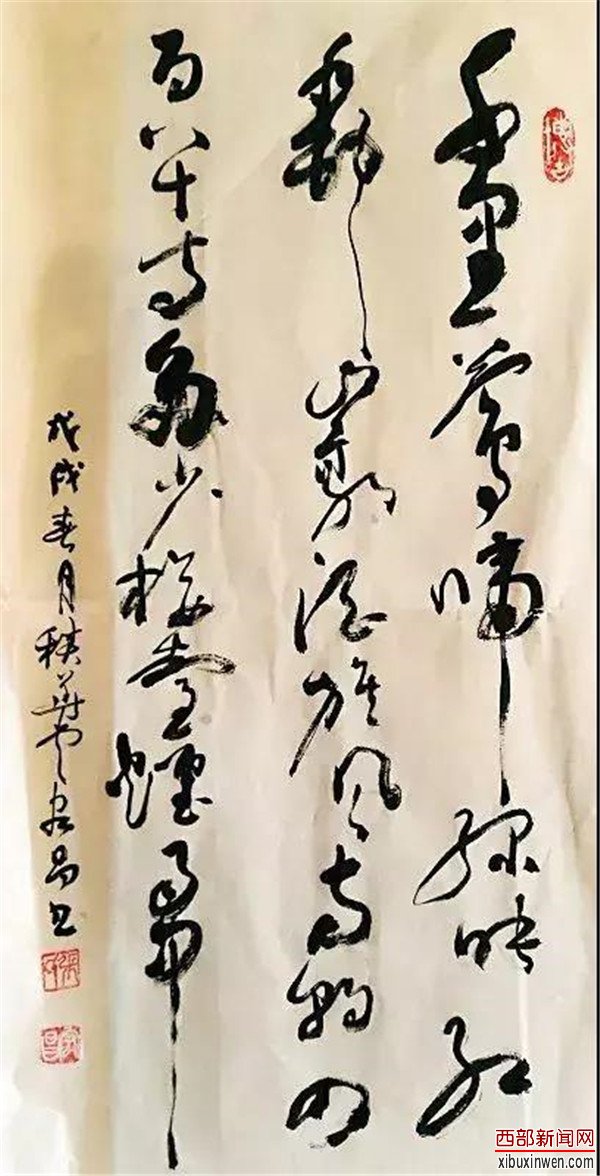 千里鶯啼綠映紅
水村山郭酒旗風南朝四
百八十寺多少樓臺煙雨中
戊戌春月昌书
西部新闻网
xibuxinwen.com